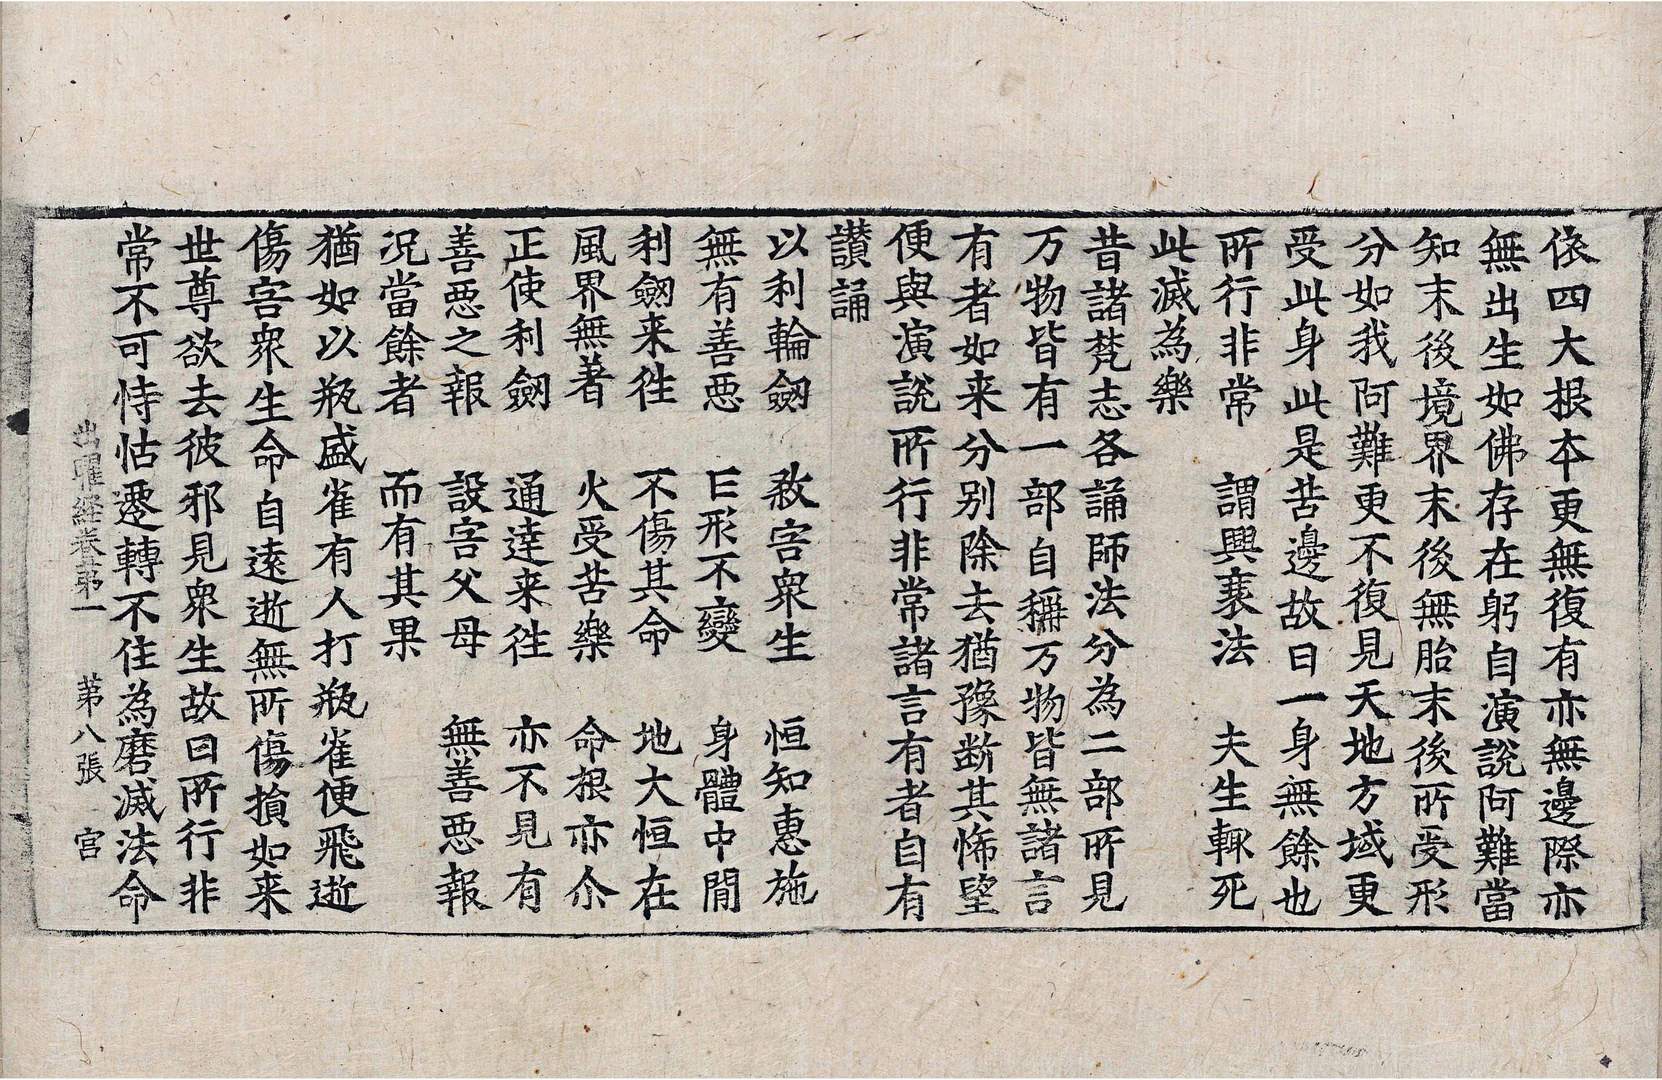 依四大根本更無復有亦無邊際亦
無出生如佛存在躬自演說阿難當
知末後境界末後無胎末後所受形
分如我阿難更不復見天地方域更
受此身此是苦邊故曰一身無餘也
所行非常　謂興衰法　夫生輒死
此滅為樂
昔諸梵志各誦師法分為二部所見
万物皆有一部自稱万物皆無諸言
有者如来分別除去猶豫断其悕望
便與演說所行非常諸言有者自有
讃誦
以利輪劒　煞害衆生　恒知惠施
無有善惡　七形不變　身體中間
利劒来往　不傷其命　地大恒在
風界無著　火受苦樂　命根亦尒
正使利劒　通達来往　亦不見有
善惡之報　設害父母　無善惡報
况當餘者　而有其果
猶如以瓶盛雀有人打瓶雀便飛逝
傷害衆生命自遠逝無所傷損如来
世尊欲去彼邪見衆生故曰所行非
常不可恃怙遷轉不住為磨滅法命
出曜経卷苐一　苐八張　宫